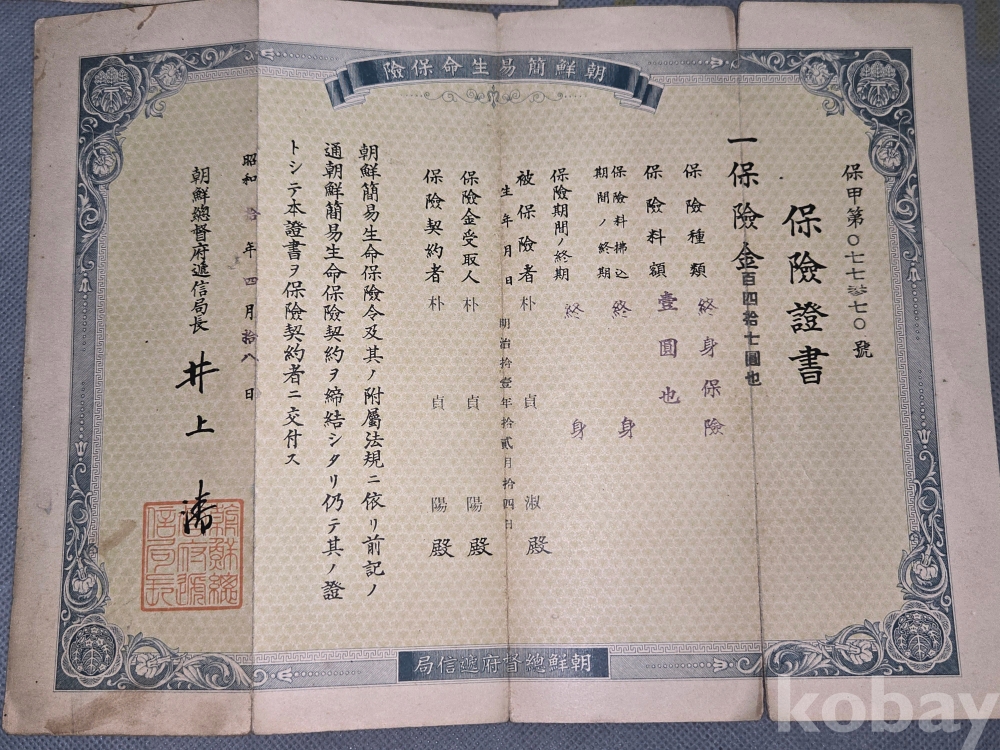 朝鮮簡易生命保險
保甲第〇七七叄七〇號
保險證書
一保險金百四拾七圓也
保險種類 終身保險
保險料額 壹圓也
保險料拂込期間ノ終期 終身
保險期間ノ終期 終身
被保險者 朴貞淑殿
生年月日 明治拾壹年拾貳月拾四日
保險金受取人 朴貞陽殿
保險契約者 朴貞陽殿
朝鮮簡易生命保險令及其ノ附屬法規ニ依リ前記ノ
通朝鮮簡易生命保險契約ヲ締結シタリ仍テ其ノ證
トシテ本證書ヲ保險契約者ニ交付ス
昭和拾年四月拾八日
朝鮮總督府遞信局長 井上清
朝鮮總督府遞信局長
朝鮮總督府遞信局
kobay